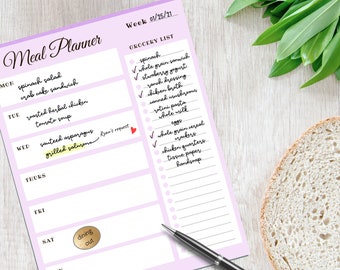 Meal Planner
Week 01/25/21
GROCERY LIST
MON
spinach salad
crab cake sandwich
TUE
roasted herbal chicken
tomato soup
WED
sauteed asparagus
grilled salmon
don't repeat
THURS
FRI
SAT
dining
out
spinach
whole grain spinach
strawberry yogurt
ranch dressing
chicken broth
canned mushrooms
rotini pasta
whole milk
eggs
whole grain cereal
crackers
chicken quarters
tissue paper
handsoap